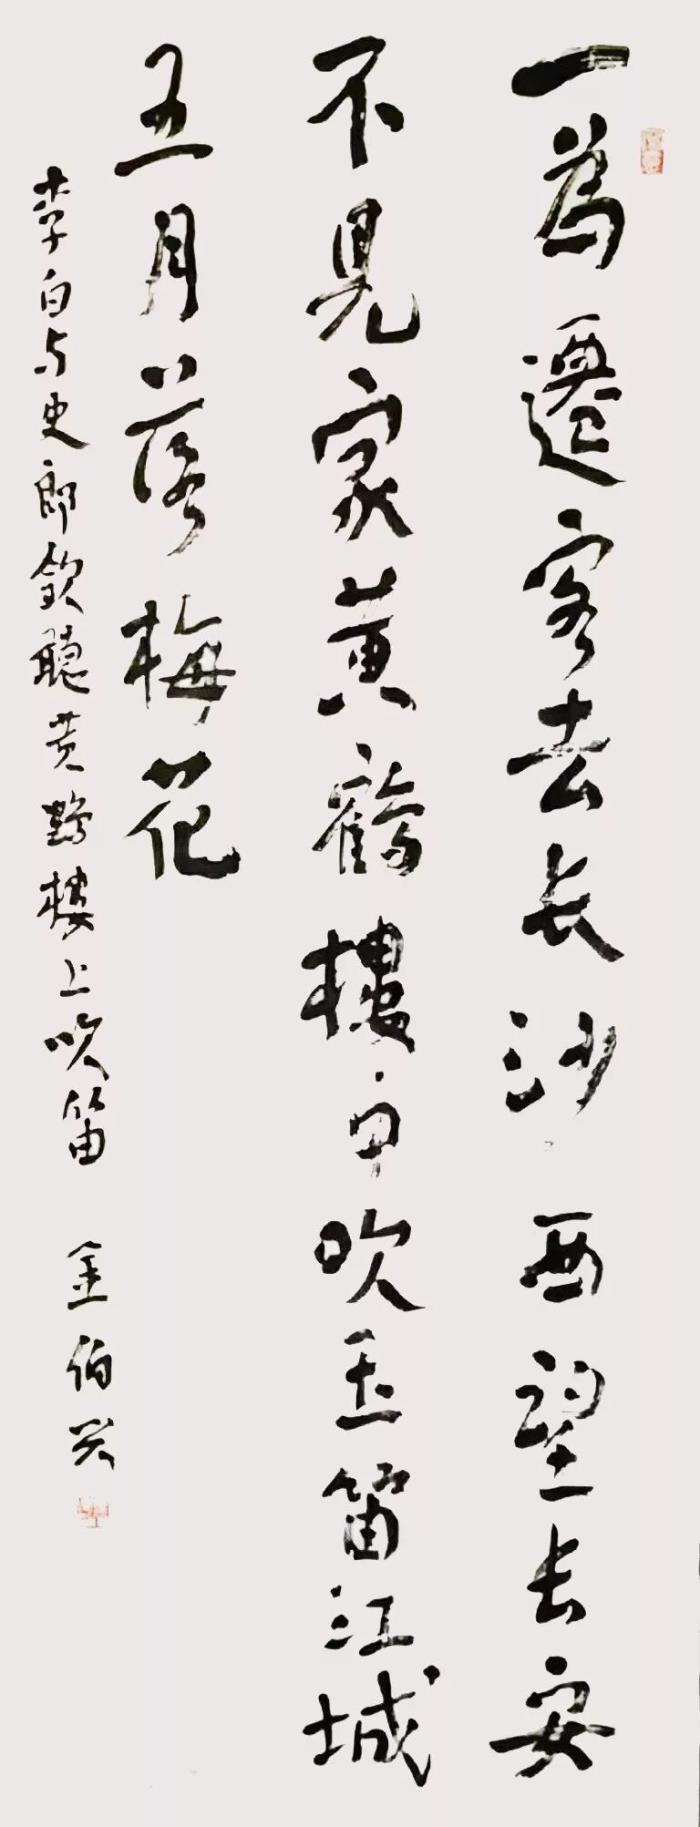 一為遷客去长沙西望长安
不見家黄鶴樓中吹玉笛江城
五月落梅花
李白与史郎欽聽黄鹤樓上吹笛 金伯兴